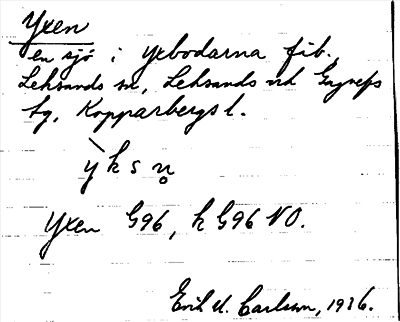 Yxen
en sjö i Yxbodarna fäb.,
Leksands sn, Leksands och Gagnefs
tg, Kopparbergs l.
y̍ k s n̥
Yxen G96, k G96 NO.
Erik M. Carlsson, 1936.